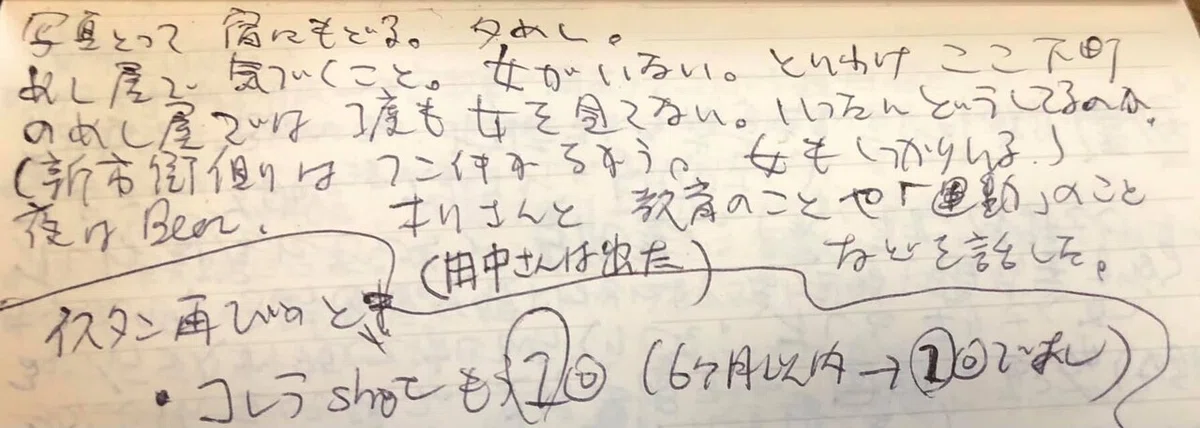 写真とって 宿にもどる。夕めし。
めし屋で気づくこと。女がいない。とりわけここ下町
のめし屋では1度も女を見てない。いったいどうしてるのか。
(新市街側は フンイ件がちがう。女もしっかりいる。)
夜はBeer. 本りさんと 教育のことや「運動」のこと
などを話した。
(田中さんは出た)
イスタン再びのとき
・コレラshotをもう1回 (6ヶ月以内→1回でよし)